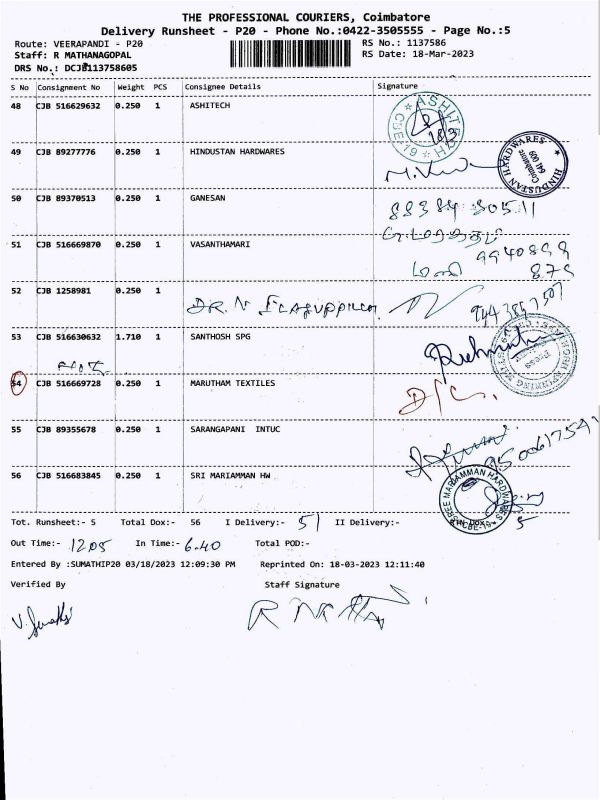 THE PROFESSIONAL COURIERS, Coimbatore
Delivery Runsheet - P20 - Phone No.:0422-3505555 - Page No.:5
Route: VEERAPANDI - P20 RS No.: 1137586
Staff: R MATHANAGOPAL RS Date: 18-Mar-2023
DRS No.: DCJB113758605
S No Consignment No Weight PCS Consignee Details Signature
48 CJB 516629632 0.250 1 ASHITECH
183
49 CJB 89277776 0.250 1 HINDUSTAN HARDWARES
HINDUSTAN HARDWARES Coimbatore 641 009
50 CJB 89370513 0.250 1 GANESAN
88384 30511
51 CJB 516669870 0.250 1 VASANTHAMARI
9940899
879
52 CJB 1258981 0.250 1
53 CJB 516630632 1.710 1 SANTHOSH SPG
54 CJB 516669728 0.250 1 MARUTHAM TEXTILES
D/C.
55 CJB 89355678 0.250 1 SARANGAPANI INTUC
56 CJB 516683845 0.250 1 SRI MARIAMMAN HW
SREE MARIAMMAN HARDWARES CBE-19
Tot. Runsheet:- 5 Total Dox:- 56 I Delivery:- 51 II Delivery:- 5
Out Time:- 1205 In Time:- 6.40 Total POD:-
Entered By :SUMATHIP20 03/18/2023 12:09:30 PM Reprinted On: 18-03-2023 12:11:40
Verified By Staff Signature